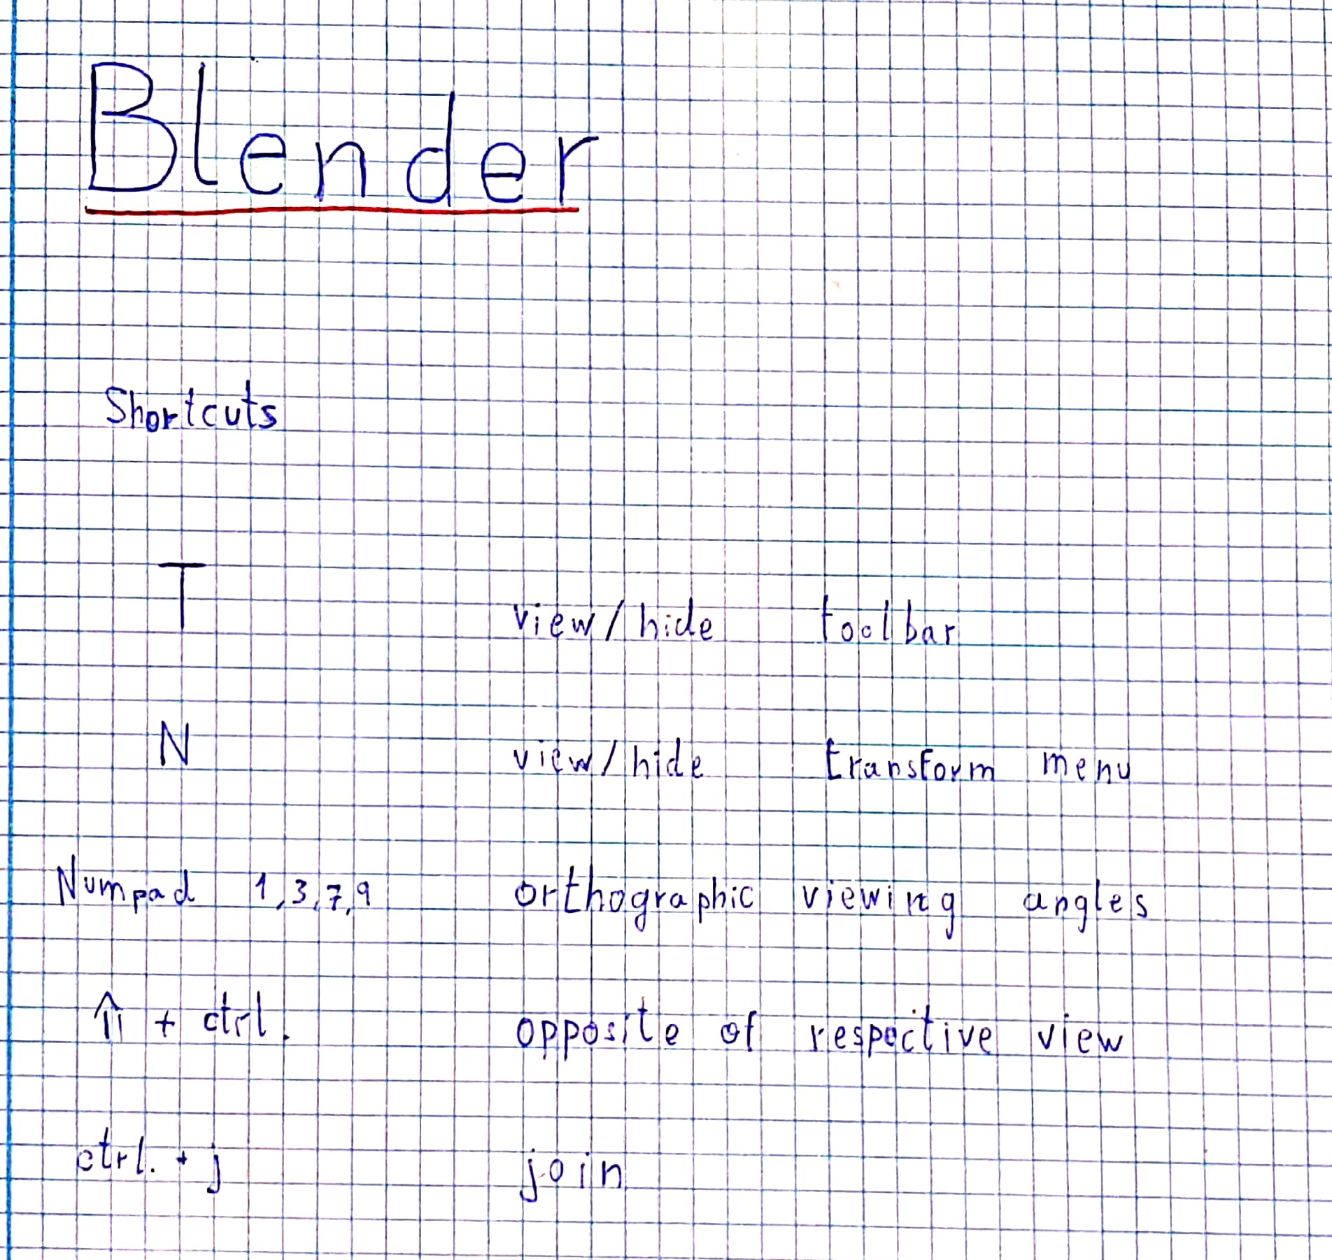 Blender
Shortcuts
T view/hide toolbar
N view/hide transform menu
Numpad 1,3,7,9 orthographic viewing angles
⇑ + ctrl. opposite of respective view
ctrl. + j join